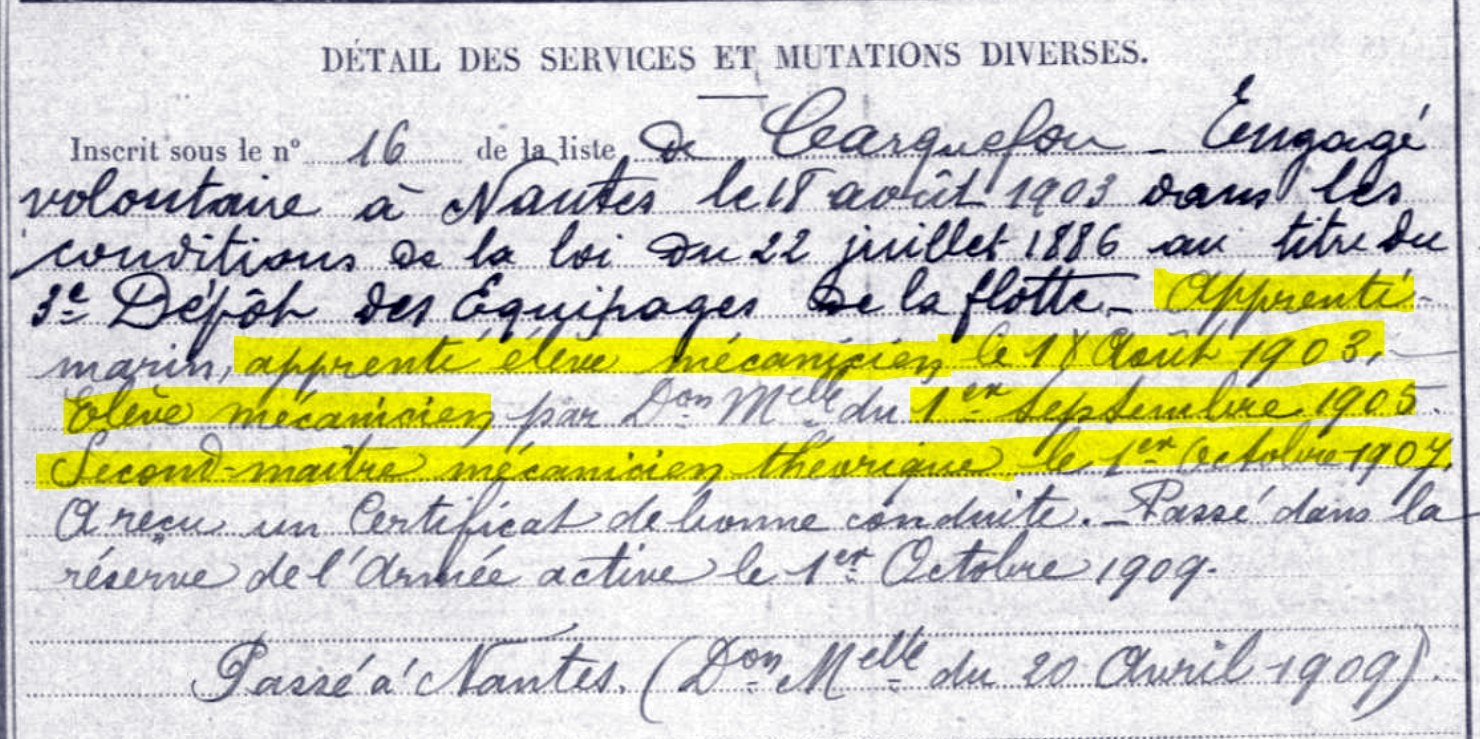 DÉTAIL DES SERVICES ET MUTATIONS DIVERSES.
Inscrit sous le n° 16 de la liste de Carquefou - Engagé
volontaire à Nantes le 18 août 1903 dans les
conditions de la loi du 22 juillet 1886 au titre du
3e Dépôt des Equipages de la flotte - Apprenti-
marin, apprenti élève mécanicien le 18 Août 1903,
Elève mécanicien par Don Melle du 1er Septembre 1905.
Second-maître mécanicien théorique le 1er Octobre 1907.
A reçu un Certificat de bonne conduite. - Passé dans la
réserve de l'Armée active le 1er Octobre 1909.
Passé à Nantes. (Don Melle du 20 Avril 1909).